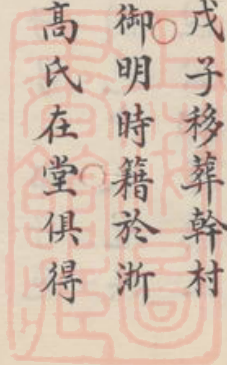 戊子移葬幹村
御明時籍於浙
髙氏在堂俱得